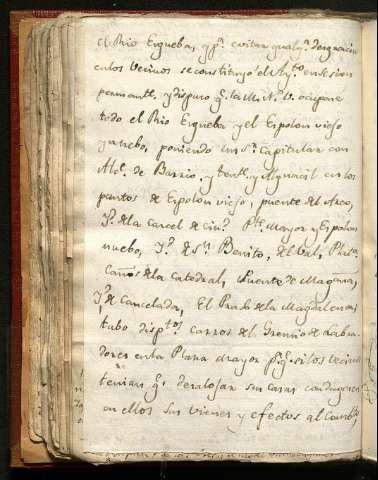 el Rio Esgueba, y pª. evitar qualqª. desgracia
en los Vecinos se constituyó el Ayto en sesion
permanente, y dispuso qe. la M. N. V. ocupase
todo el Rio Esgueba y el Espolon viejo
y nuebo, poniendo un Sr. Capitular con
Alce. de Barrio, y tente. y Alguacil en los
puntos de Espolon viejo, puente del Arco,
Yª. de la Carcel de ciud. Pte. Mayor y Espolon
nuebo, Yª. de Sn. Benito, del Val, Plazª.
Cañosdela Catedral, Fuente de Magaña,
Yª. de Cancelada, El Prado de la Magdalena es
tubo dispto. carros del Gremio de Labra
dores en la Plaza mayor pr. qe. si los Vecinos
tenian qe. desalojar sus casas condugesen
en ellos sus vienes y efectos al